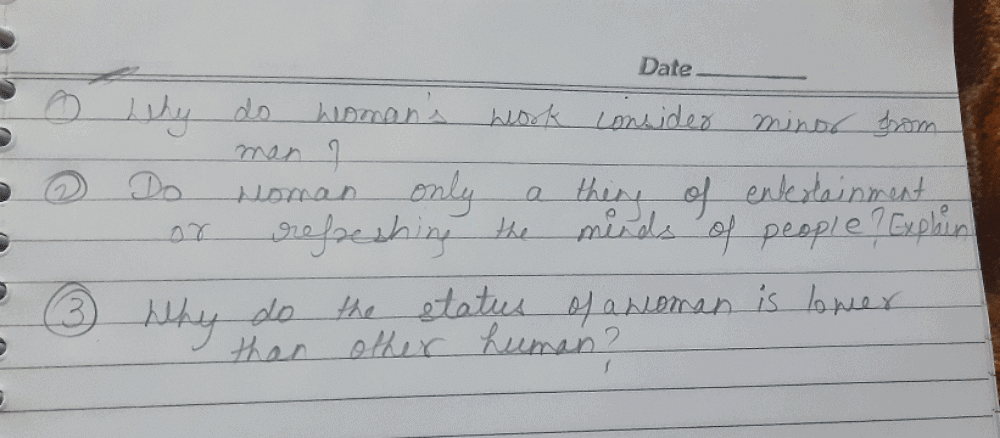 Date
① Why do woman's work consider minor from
man ?
② Do woman only a thing of entertainment
or refreshing the minds of people? Explain
③ Why do the status of a woman is lower
than other human?